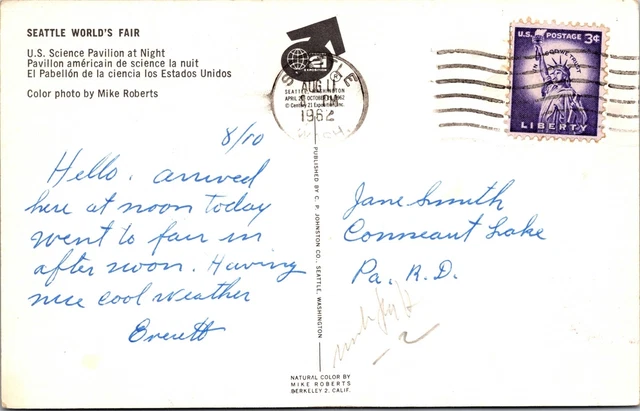 SEATTLE WORLD'S FAIR
U.S. Science Pavilion at Night
Pavillon américain de science la nuit
El Pabellón de la ciencia los Estados Unidos
Color photo by Mike Roberts
21
EXPOSITION
SEATTLE
AUG 11
1962
WASH.
SEATTLE, WASHINGTON
APRIL 21 OCTOBER 21, 1962
© Century 21 Exposition, Inc.
U.S. POSTAGE 3¢
IN GOD WE TRUST
LIBERTY
8/10
Hello. arrived
here at noon today
went to fair in
after noon. Having
nice cool weather
Everett
PUBLISHED BY C. P. JOHNSTON CO., SEATTLE, WASHINGTON
Jane Smith
Conneaut Lake
Pa., R.D.
2
NATURAL COLOR BY
MIKE ROBERTS
BERKELEY 2, CALIF.